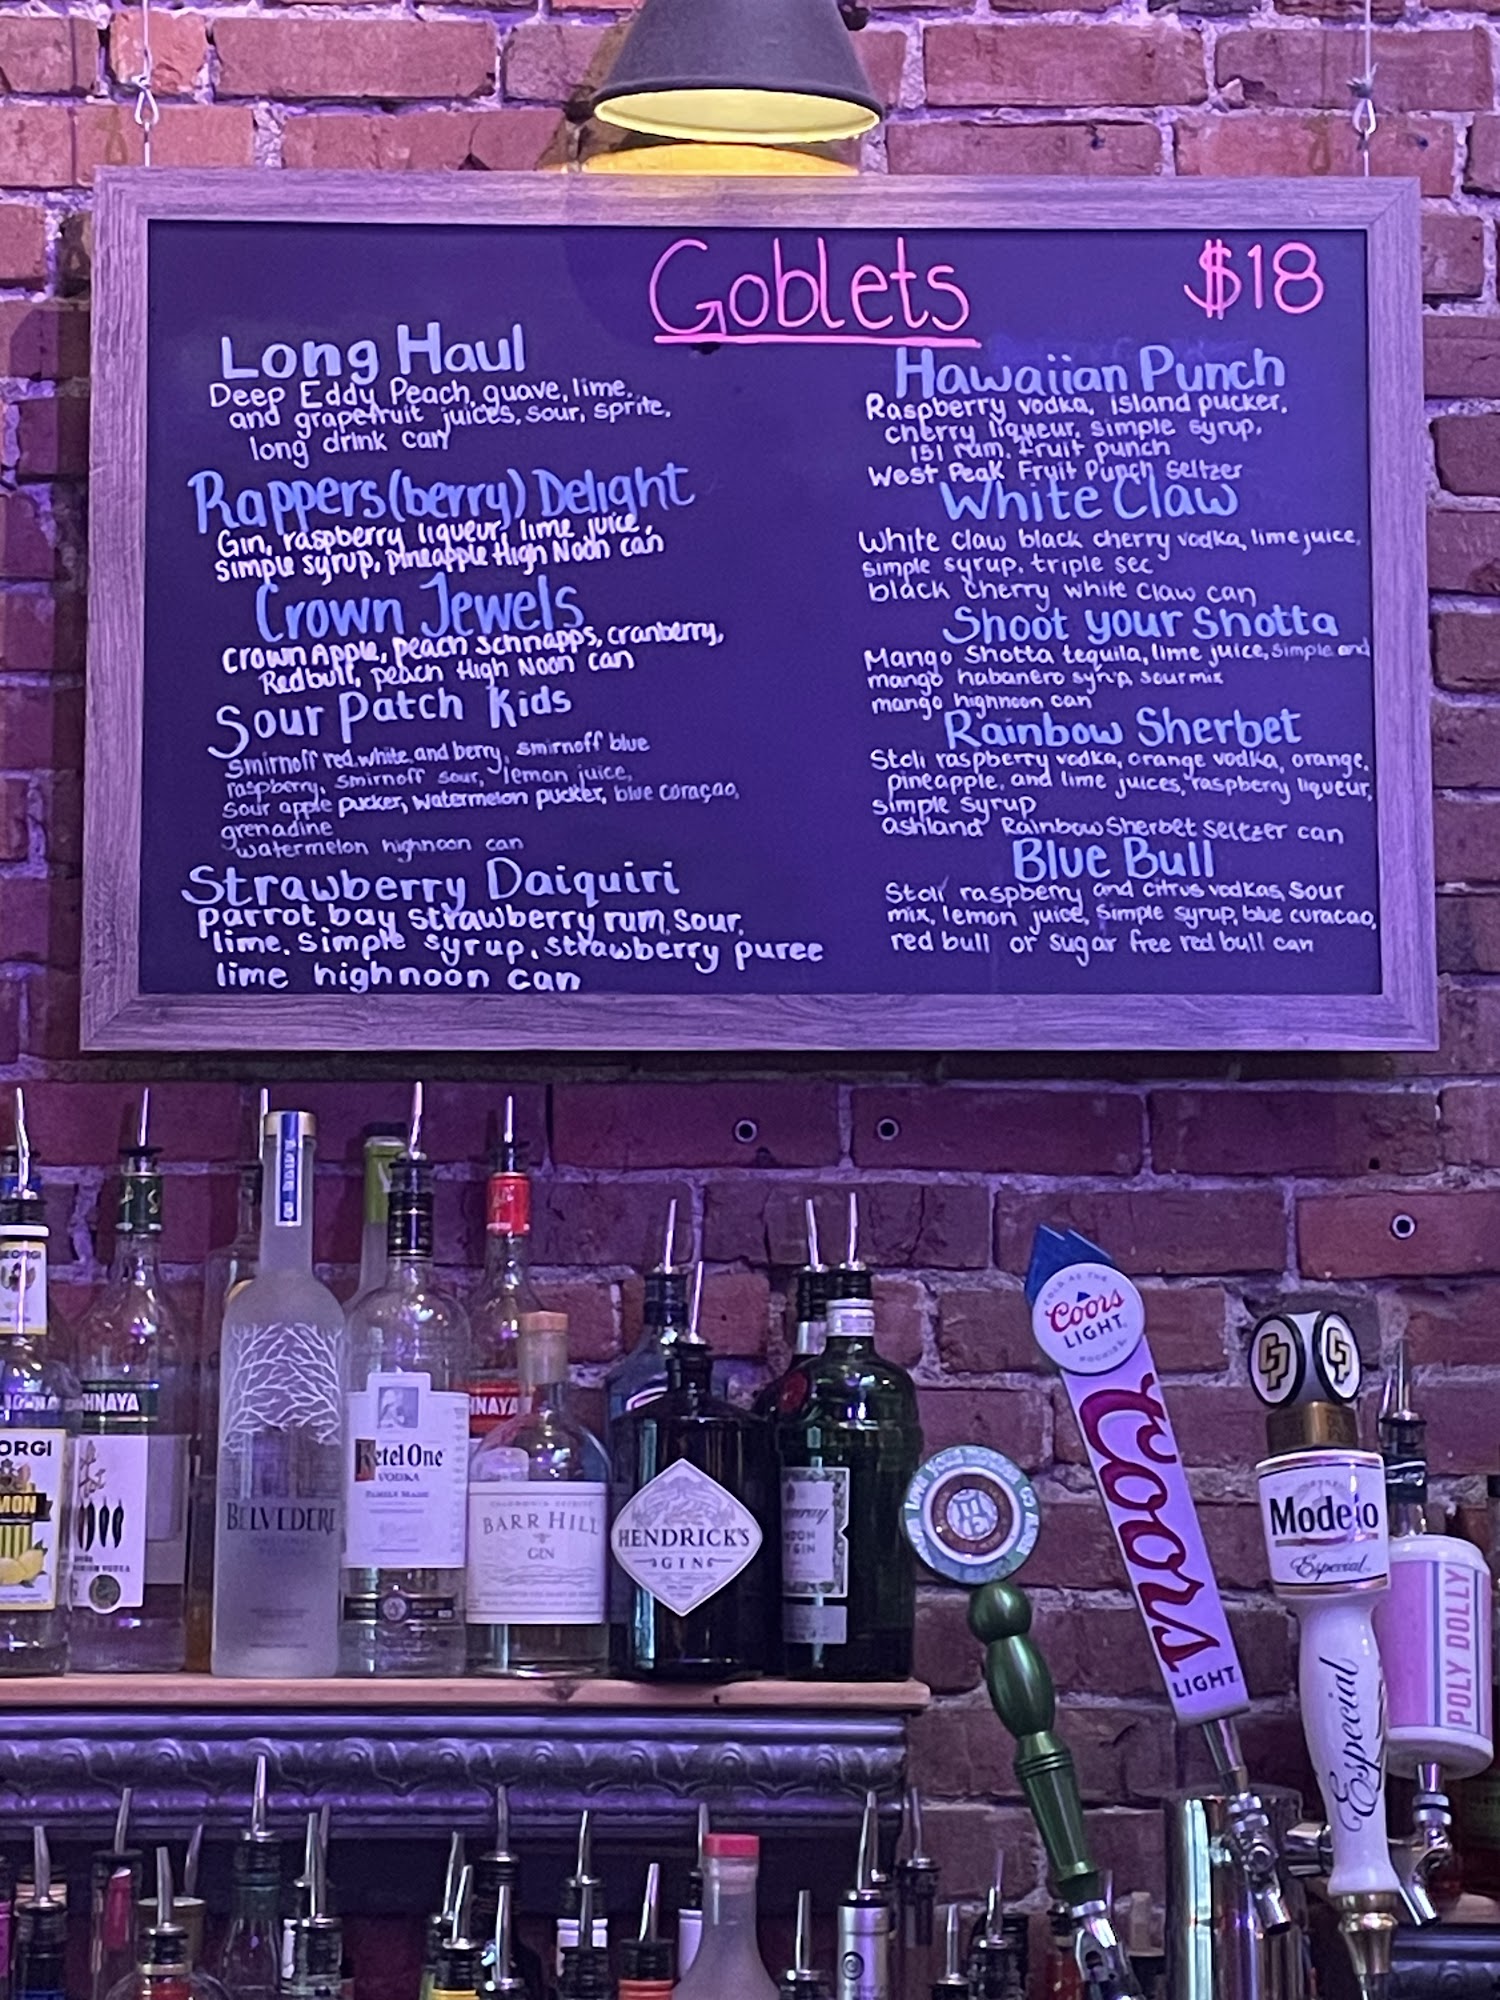 Goblets
$18
Long Haul
Deep Eddy Peach, guave, lime,
and grapefruit juices, sour, sprite,
long drink can
Rappers(berry) Delight
Gin, raspberry liqueur, lime juice,
simple syrup, pineapple High Noon can
Crown Jewels
Crown Apple, peach schnapps, cranberry,
Redbull, peach High Noon can
Sour Patch Kids
Smirnoff red, white, and berry, smirnoff blue
raspberry, smirnoff sour, lemon juice,
Sour apple pucker, watermelon pucker, blue curaçao,
grenadine
watermelon highnoon can
Strawberry Daiquiri
parrot bay strawberry rum, sour,
lime, simple syrup, strawberry puree
lime highnoon can
Hawaiian Punch
Raspberry vodka, island pucker,
cherry liqueur, simple syrup,
151 rum, fruit punch
West Peak Fruit Punch Seltzer
White Claw
White claw black cherry vodka, lime juice,
simple syrup, triple sec
black cherry white claw can
Shoot your Shotta
Mango Shotta tequila, lime juice, simple and
mango habanero syrup, sour mix
mango highnoon can
Rainbow Sherbet
Stoli raspberry vodka, orange vodka, orange,
pineapple, and lime juices, raspberry liqueur,
simple syrup
ashland Rainbow Sherbet seltzer can
Blue Bull
Stoli raspberry and citrus vodkas, sour
mix, lemon juice, simple syrup, blue curacao,
red bull or sugar free red bull can
EORGI
ORGI
MON
HNAYA
BELVEDERE
Ketel One
VODKA
FAMILY MADE
HNAYA
BARR HILL
GIN
HENDRICK'S
GIN
COLD AS THE
Coors
LIGHT
ROCKIES
Coors
LIGHT
Modelo
Especial
Especial
POLY DOLLY